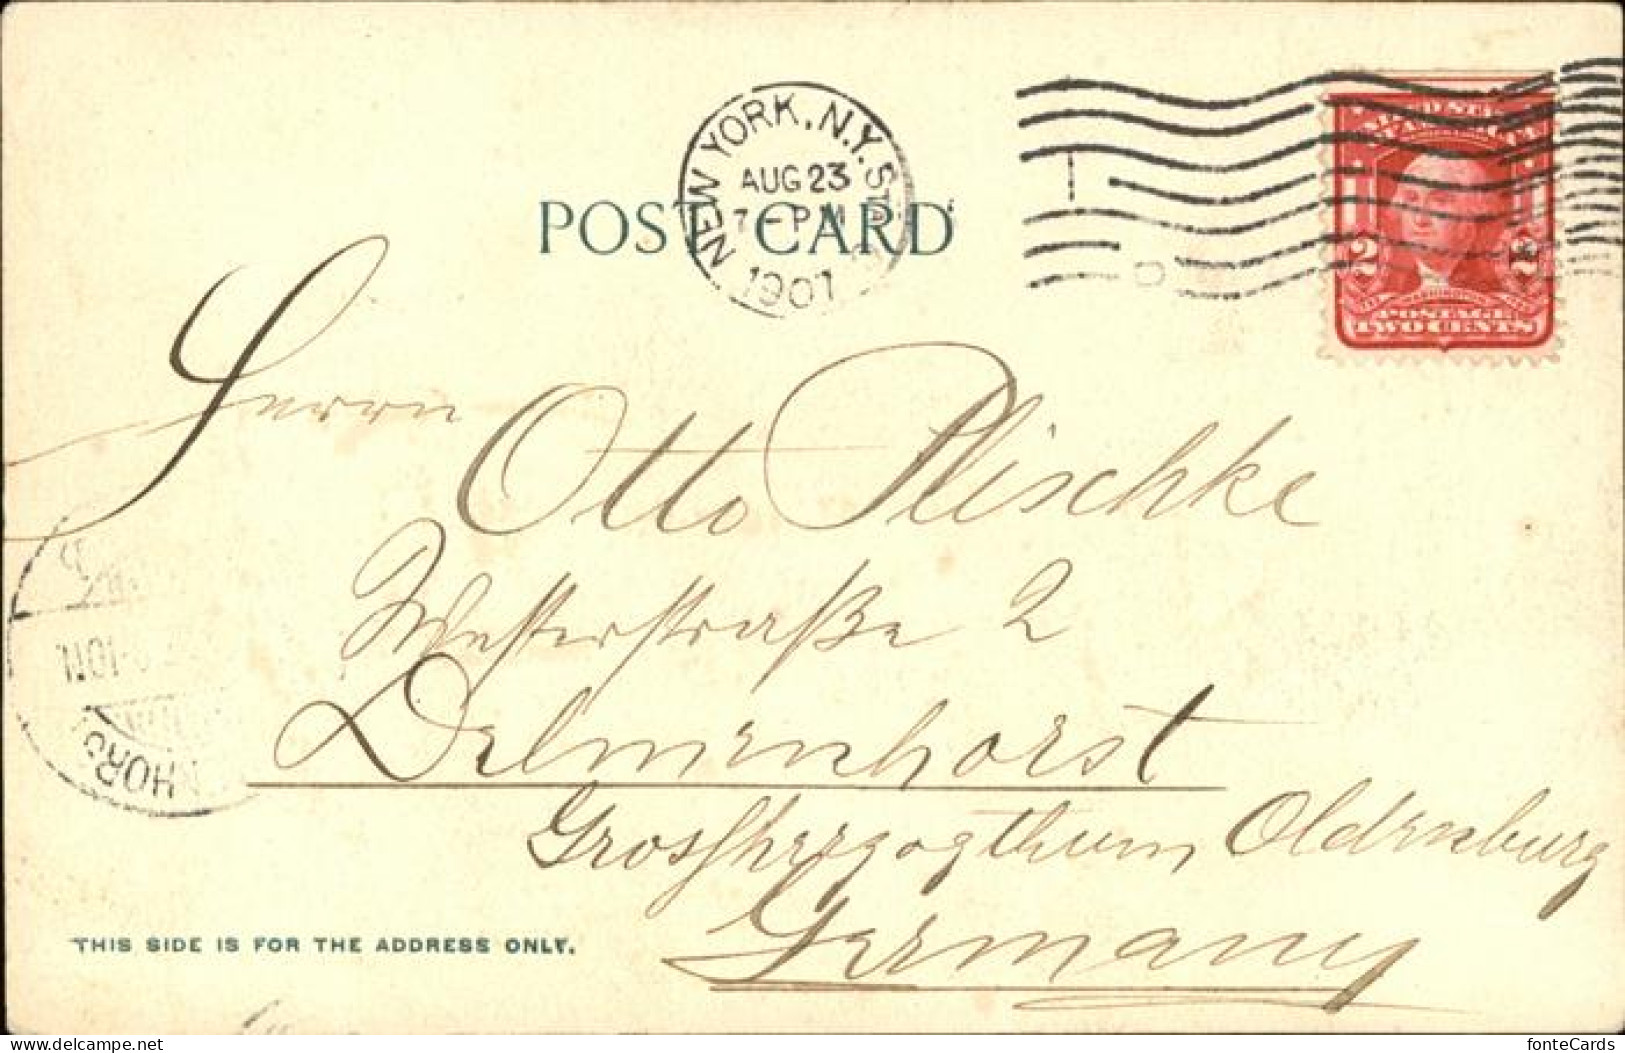 POST CARD
NEW YORK, N.Y. STA
AUG 23
7 - PM
1907
WASHINGTON
POSTAGE
2 2
TWO CENTS
Herrn
Otto Plischke
Westerstraße 2
Delmenhorst
Grossherzogthum Oldenburg
Germany
THIS SIDE IS FOR THE ADDRESS ONLY.
delcampe.net
fonteCards